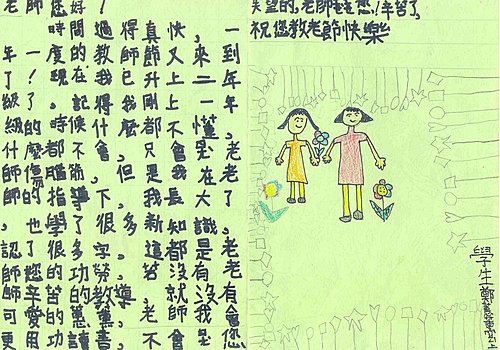 老師您好！
時間過得真快，一
年一度的教師節又來到
了！現在我已升上二年
級了。記得我剛上一年
級的時候什麼都不懂，
什麼都不會，只會惹老
師傷腦筋。但是，在老
師的指導下，我長大了
，也學了很多新知識，
認了很多字。這都是老
師您的功勞，若沒有老
師辛苦的教導，就沒有
可愛的蕙蕙。老師我會
更用功讀書，不會是您
失望的，老師謝謝您！辛苦了，
祝您教老節快樂
學生